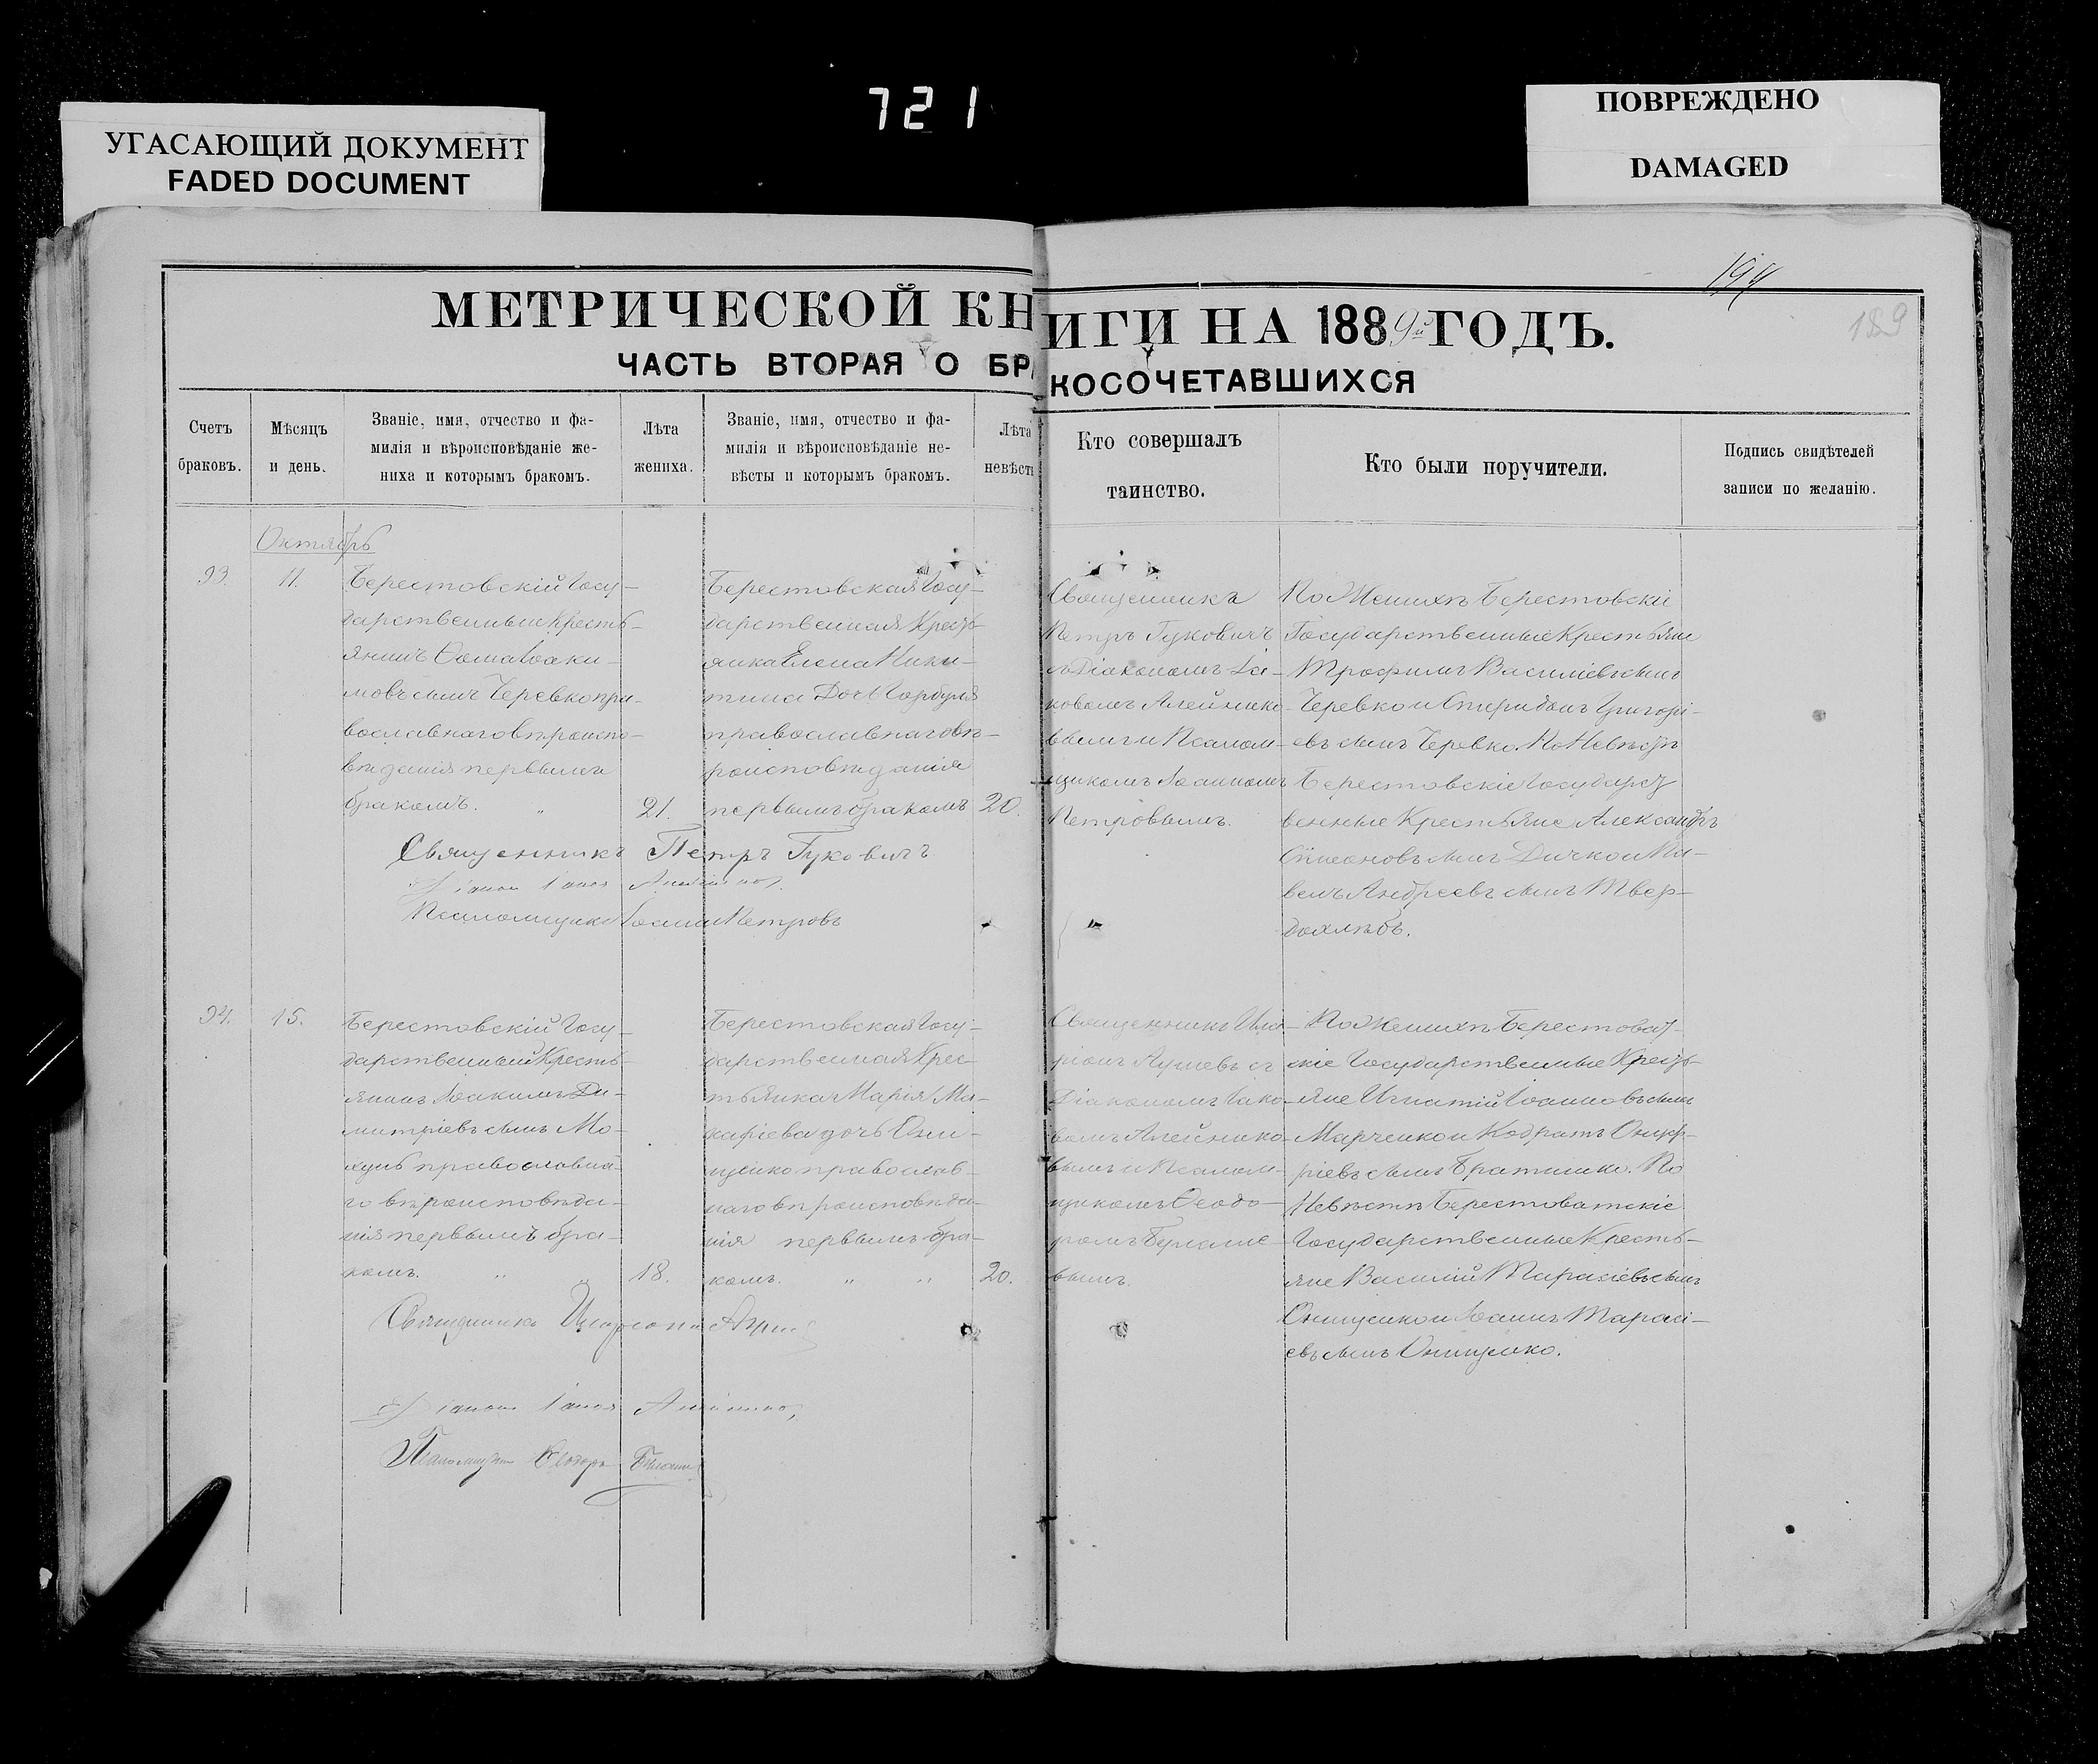 721
УГАСАЮЩИЙ ДОКУМЕНТ
FADED DOCUMENT
ПОВРЕЖДЕНО
DAMAGED
194
189
МЕТРИЧЕСКОЙ КНИГИ НА 1889й ГОДЪ.
ЧАСТЬ ВТОРАЯ О БРАКОСОЧЕТАВШИХСЯ
Счетъ
браковъ.
Мѣсяцъ
и день.
Званіе, имя, отчество и фа-
милія и вѣроисповѣданіе же-
ниха и которымъ бракомъ.
Лѣта
жениха.
Званіе, имя, отчество и фа-
милія и вѣроисповѣданіе не-
вѣсты и которымъ бракомъ.
Лѣта
невѣсты
Кто совершалъ
таинство.
Кто были поручители.
Подпись свидѣтелей
записи по желанію.
Октябрь
93.
11.
Берестовскій Госу-
дарственный Кресть-
янинъ Ѳома Іоаки-
мовъ сынъ Черевко пра-
вославнаго вѣроиспо-
вѣданія первымъ
бракомъ. „
21.
Берестовская Госу-
дарственная Кресть-
янка Елена Ники-
тина Дочь Горбуля
православнаго вѣ-
роисповѣданія
первымъ бракомъ
20.
Священникъ
Петръ Гуковичъ
съ Діакономъ Іа-
ковомъ Алейнико-
вымъ и Псалом-
щикомъ Іоанномъ
Петровымъ.
По Женихѣ Берестовскіе
Государственные Крестьяне
Трофимъ Василіевъ сынъ
Черевко и Спиридонъ Григорі-
евъ сынъ Черевко. По Невѣстѣ
Берестовскіе Государст
венные Крестьяне Александръ
Симеоновъ сынъ Дичко и Па-
велъ Андреевъ сынъ Твер-
дохлѣбъ.
Священникъ Петръ Гуковичъ
Діаконъ Іаковъ
Псаломщикъ Іоаннъ Петровъ
94.
15.
Берестовскій Госу-
дарственный Кресть-
янинъ Іоакимъ Ди-
митріевъ сынъ Мо-
православна-
го вѣроисповѣда-
нія первымъ бра-
комъ. „ „
18.
Берестовская Госу-
дарственная Крес-
тьянка Марія Ма-
каріева дочь Они-
щенко православ-
наго вѣроисповѣда-
нія первымъ бра-
комъ. „ „
20.
Священникъ Ила-
ріонъ съ
Діакономъ Іако-
вомъ Алейнико-
вымъ и Псалом-
щикомъ Ѳеодо-
ромъ
вымъ.
По Женихѣ Берестоват-
скіе Государственные Кресть-
яне Игнатій Іоанновъ сынъ
Марченко и Кодратъ Онуф-
ріевъ сынъ По
Невѣстѣ Берестоватскіе
Государственные Кресть-
яне Василій Тарасіевъ сынъ
Онищенко и Іоаннъ Тарасі-
евъ сынъ Онищенко.
Священникъ Иларіонъ
Діаконъ Іаковъ
Псаломщикъ Ѳеодоръ